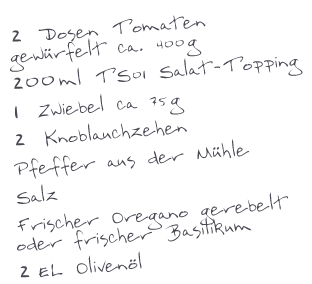 2 Dosen Tomaten
gewürfelt ca. 400g
200ml TSOI Salat-Topping
1 Zwiebel ca 75g
2 Knoblauchzehen
Pfeffer aus der Mühle
Salz
Frischer Oregano gerebelt
oder frischer Basilikum
2 EL Olivenöl